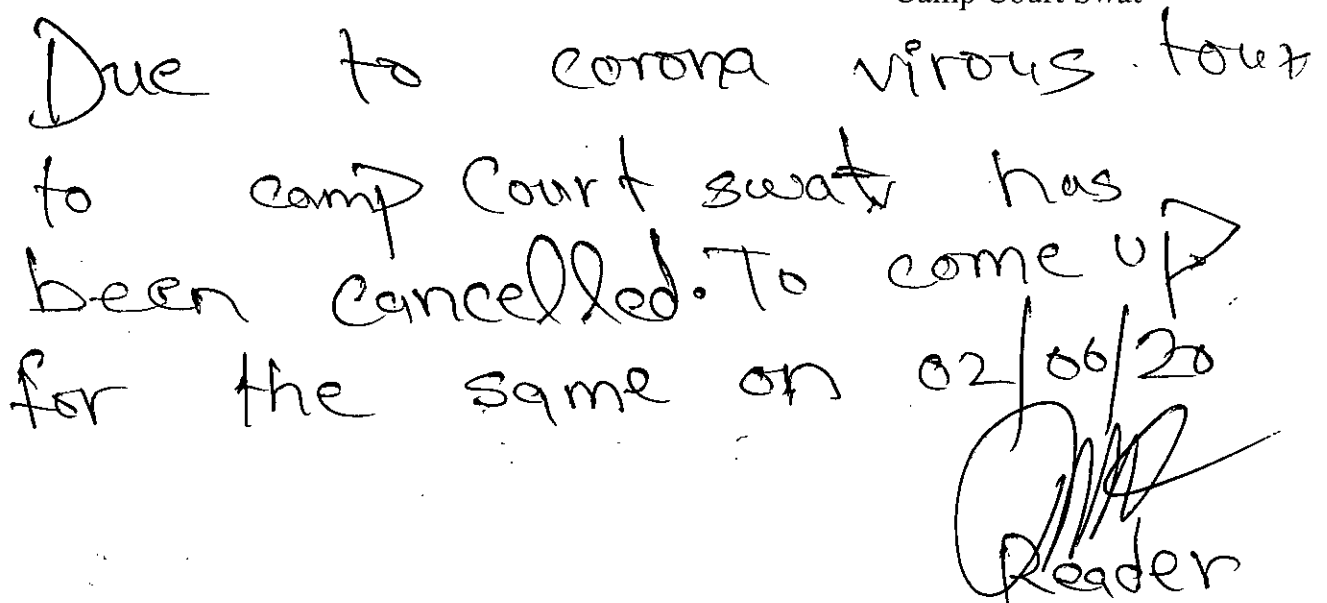 Camp Court Swat
Due to corona virous tour
to camp Court swat has
been cancelled. To come up
for the same on 02/06/20
Reader